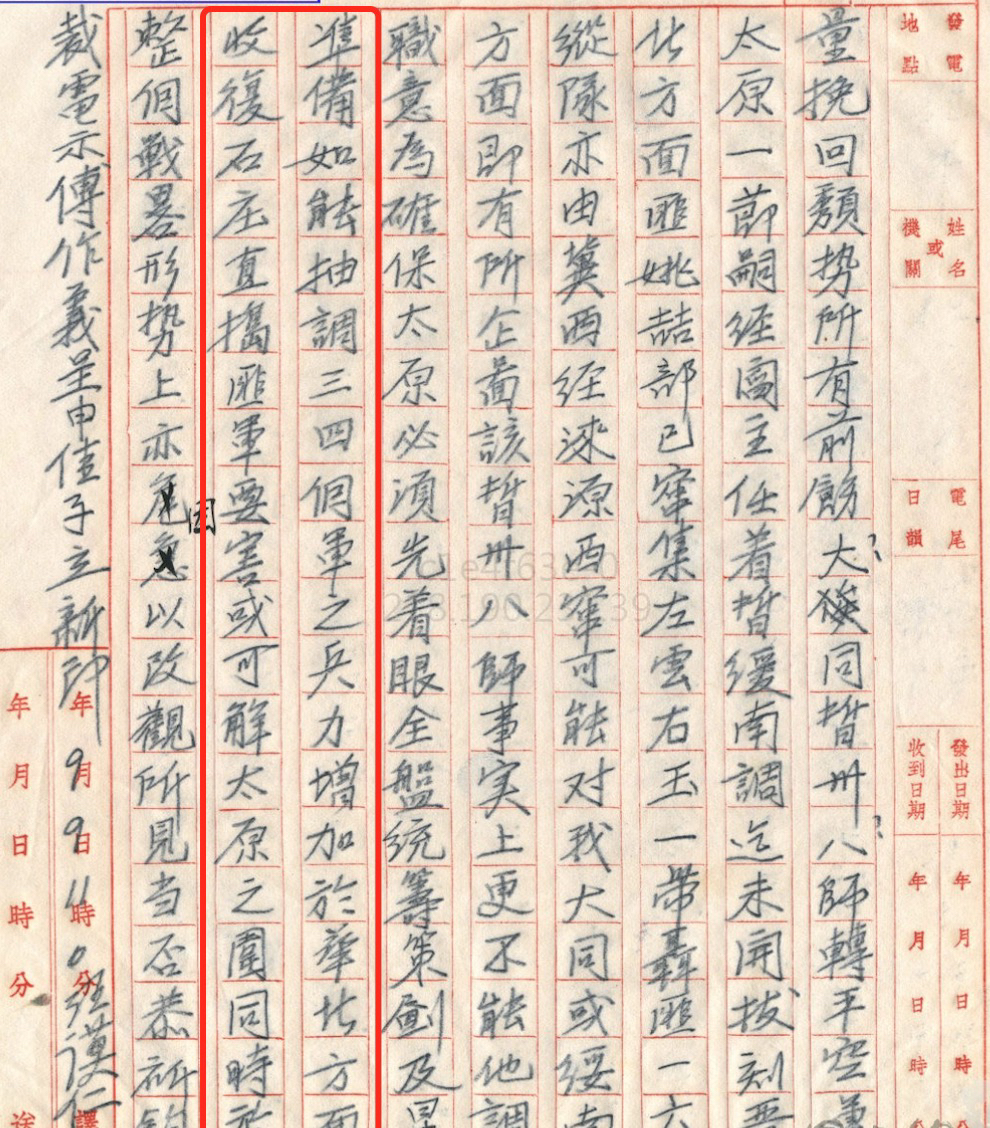 發電地點
機關或姓名
電尾日韻
發出日期 年 月 日 時
收到日期 年 月 日 時
量挽回頹勢所有前飭大後同暫卅八師轉平空
太原一節嗣經閻主任着暫緩南調迄未開拔刻晋
北方面匪姚喆部已竄集左雲右玉一帶聶匪一六
縱隊亦由冀西經淶源西竄可能对我大同或綏南
方面即有所企啚該暫卅八師事实上更不能他調
職意為確保太原必須先着眼全盤統籌策劃及早
準備如能抽調三四個軍之兵力增加於華北方面
收復石庄直搗匪軍要害或可解太原之圍同時於
整個戰畧形势上亦固以改觀所見当否恭祈鈞
裁電示傅作義呈申佳子立新印
年9月9日11時0分
年月日時分
譯
送